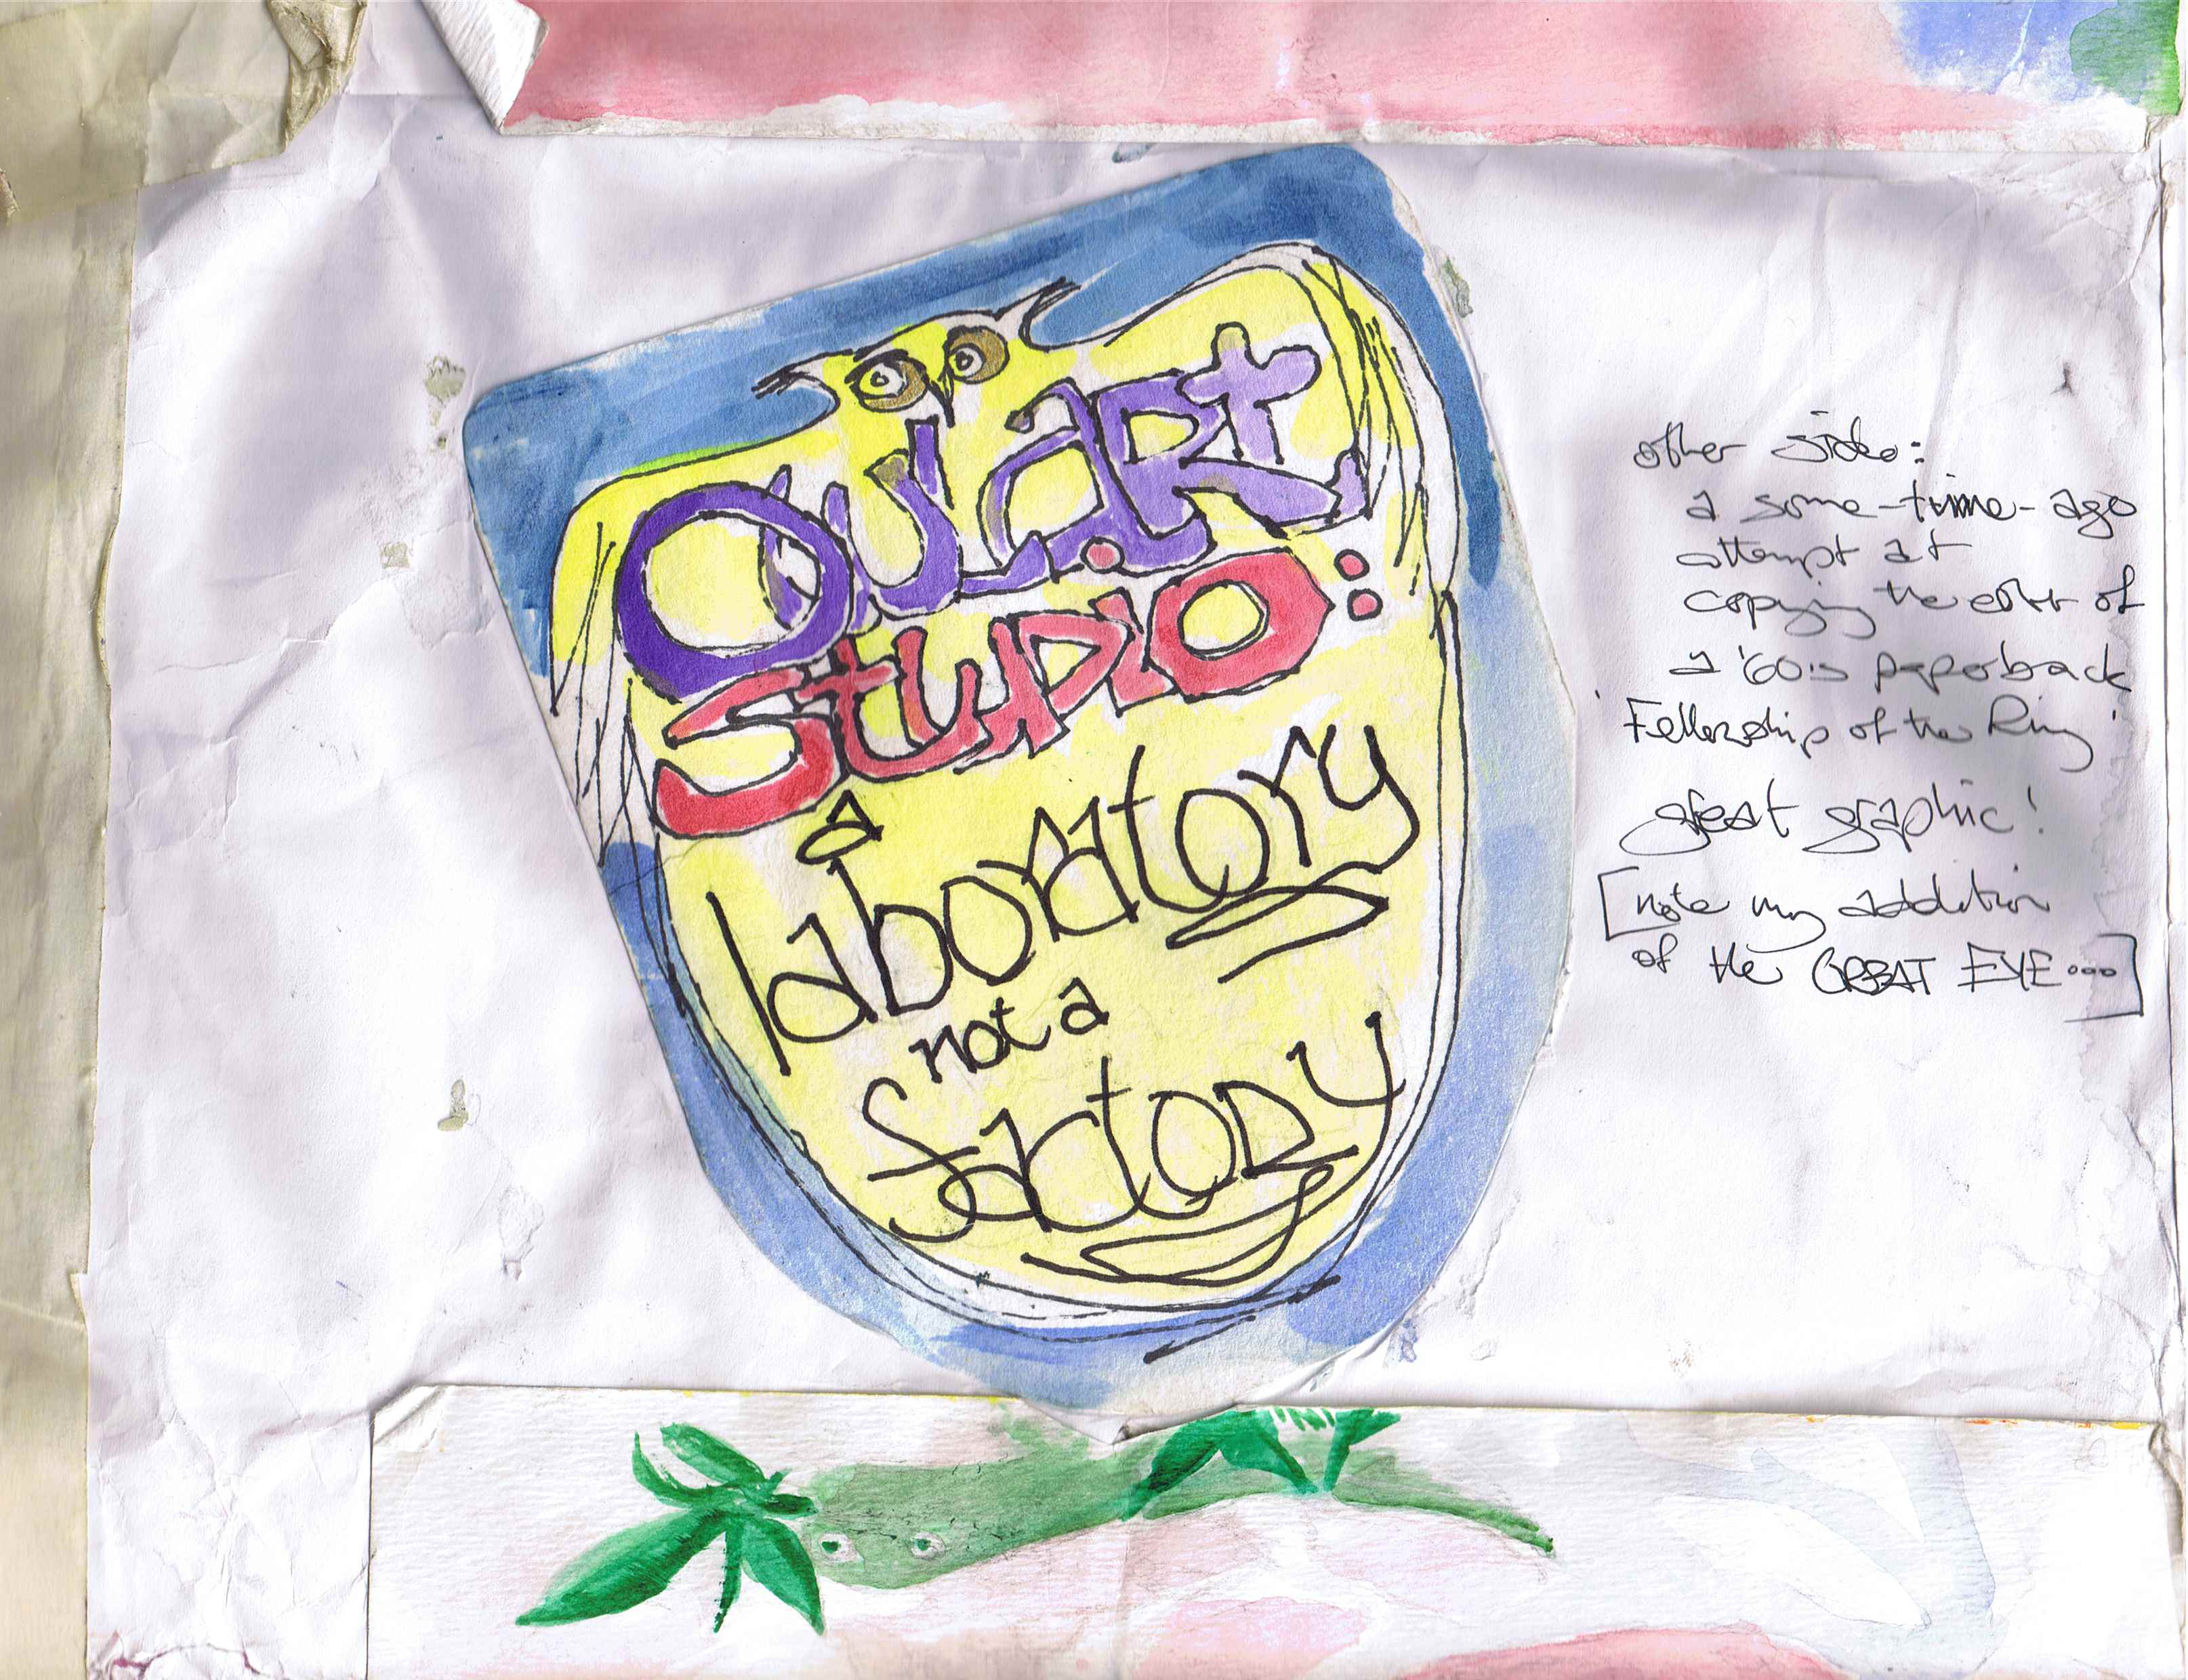 OWL aRt
StuDiO:
a
laboRAtory
not a
factoRy
other side:
a some-time-ago
attempt at
copying the cover of
a '60s paperback
'Fellowship of the Ring'
great graphic!
[note my addition
of the GREAT EYE...]